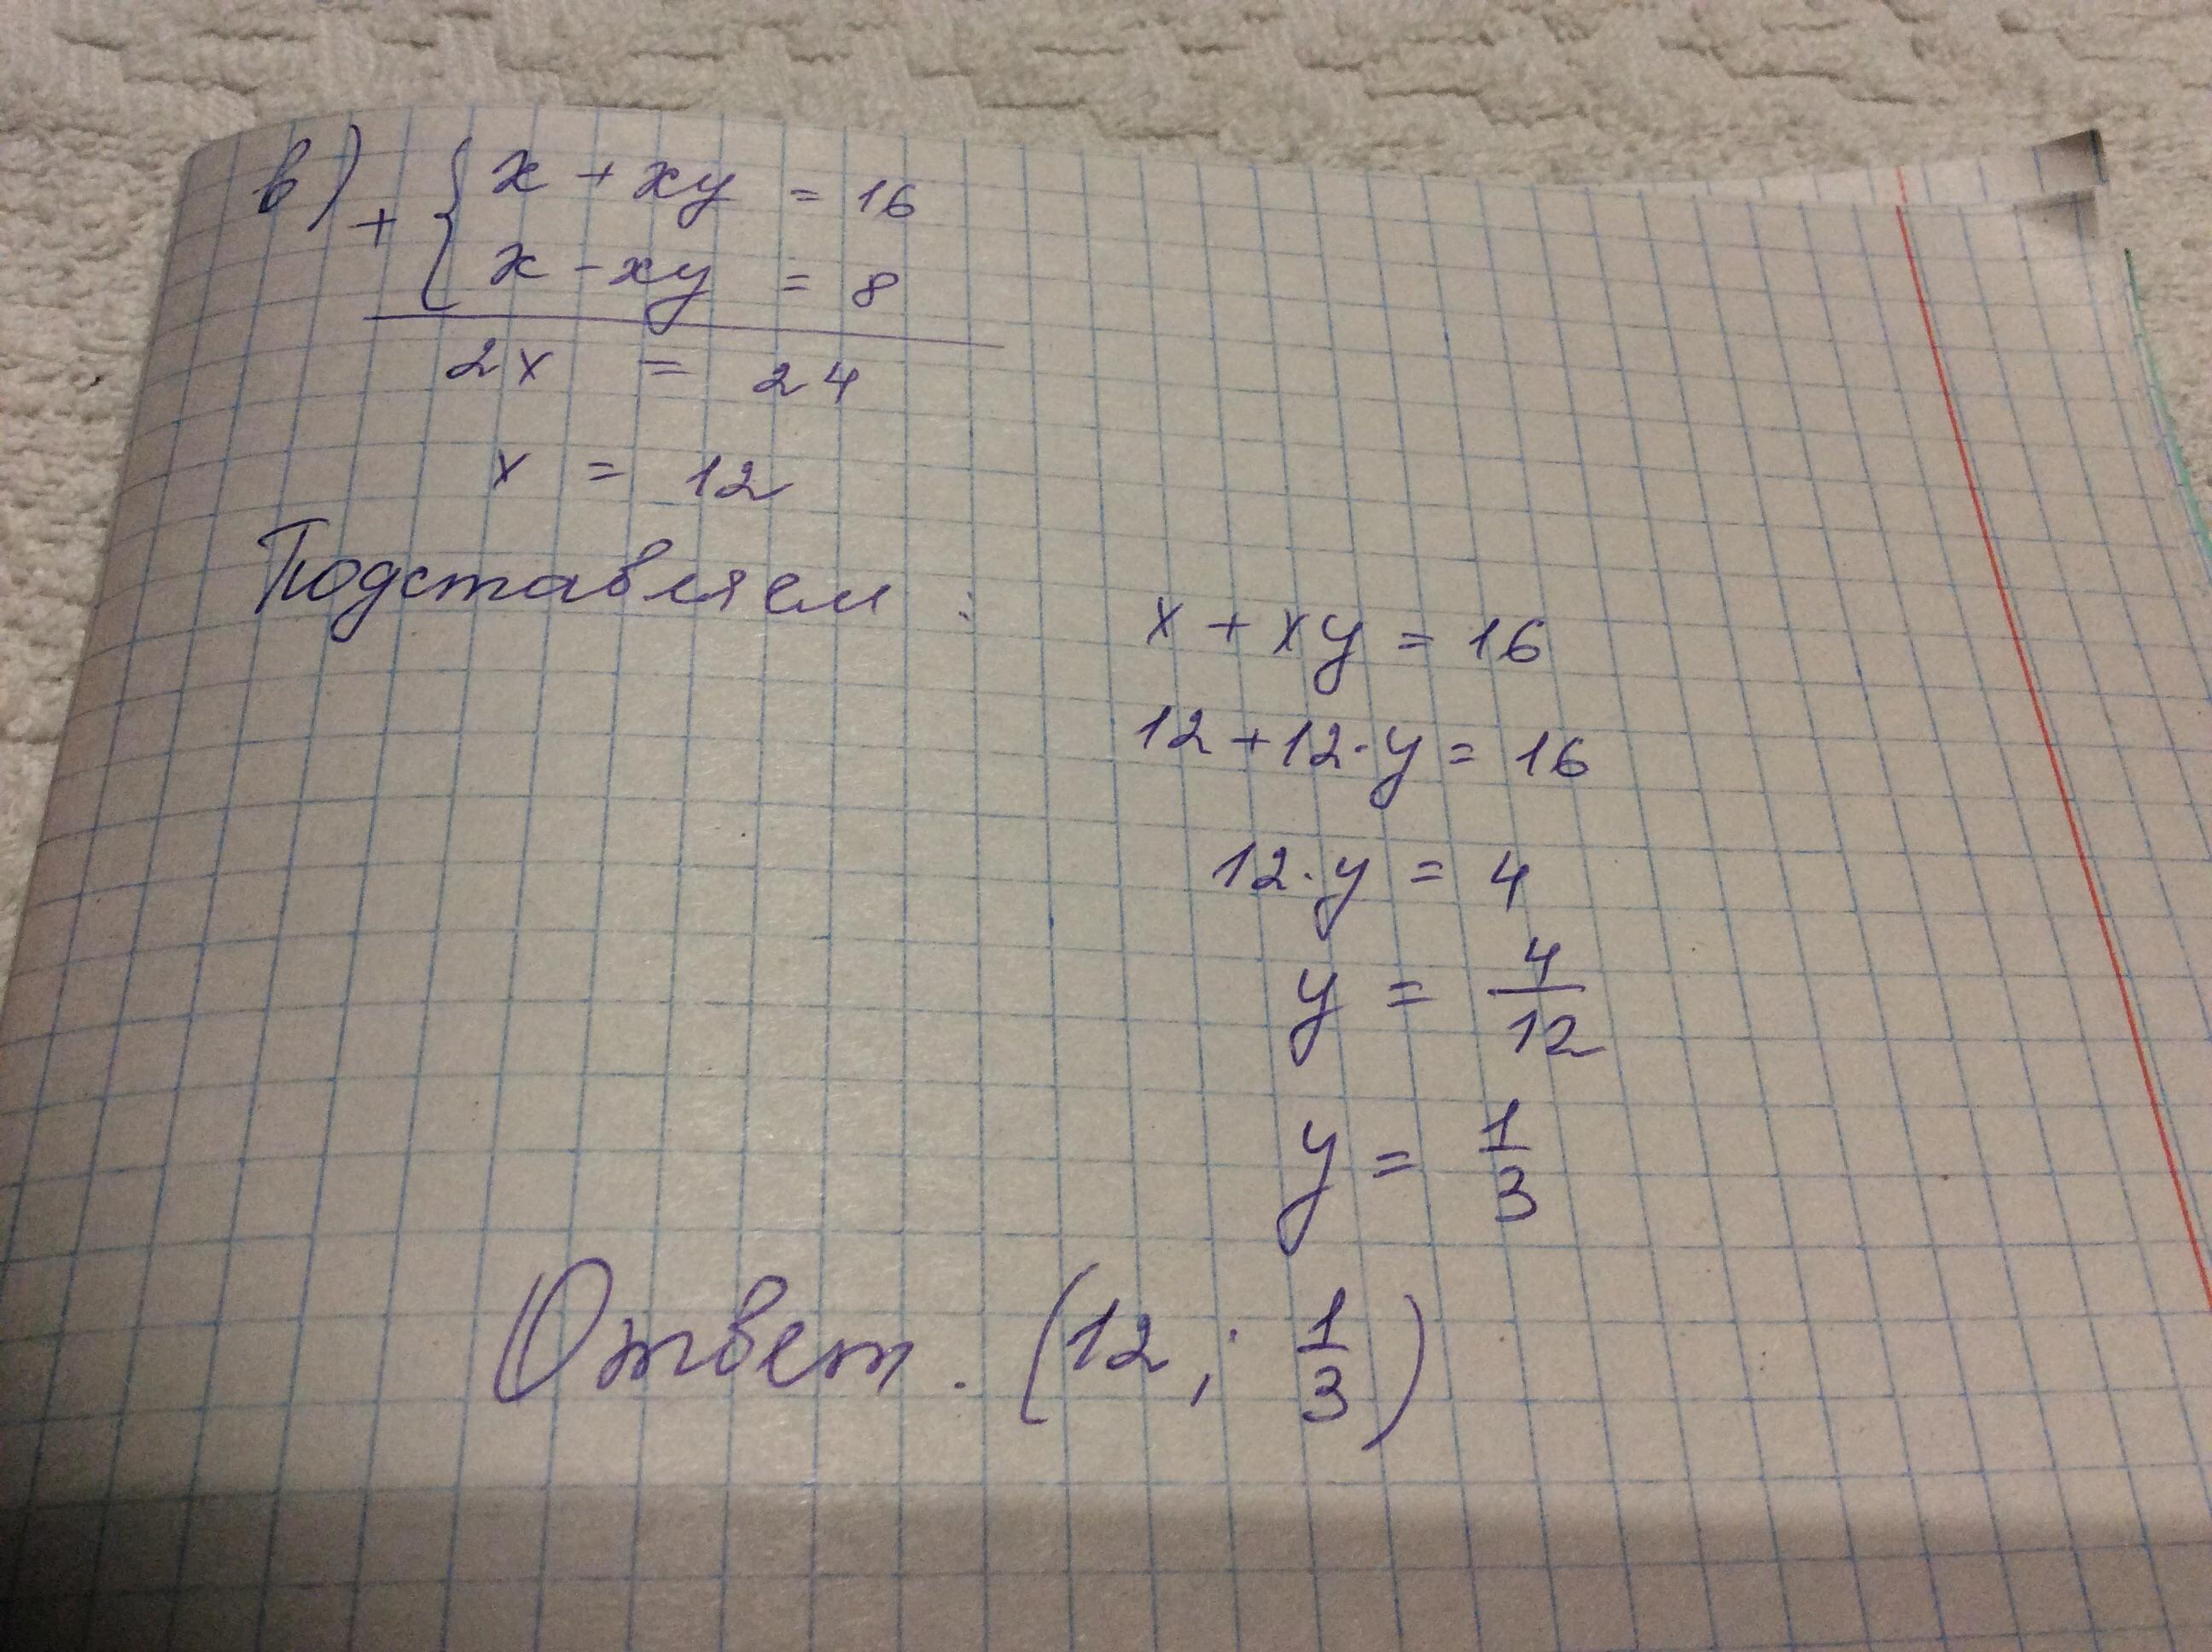 в) + { x + xy = 16
x - xy = 8
2x = 24
x = 12
Подставляем : x + xy = 16
12 + 12 · y = 16
12 · y = 4
y = 4/12
y = 1/3
Ответ. (12 ; 1/3)